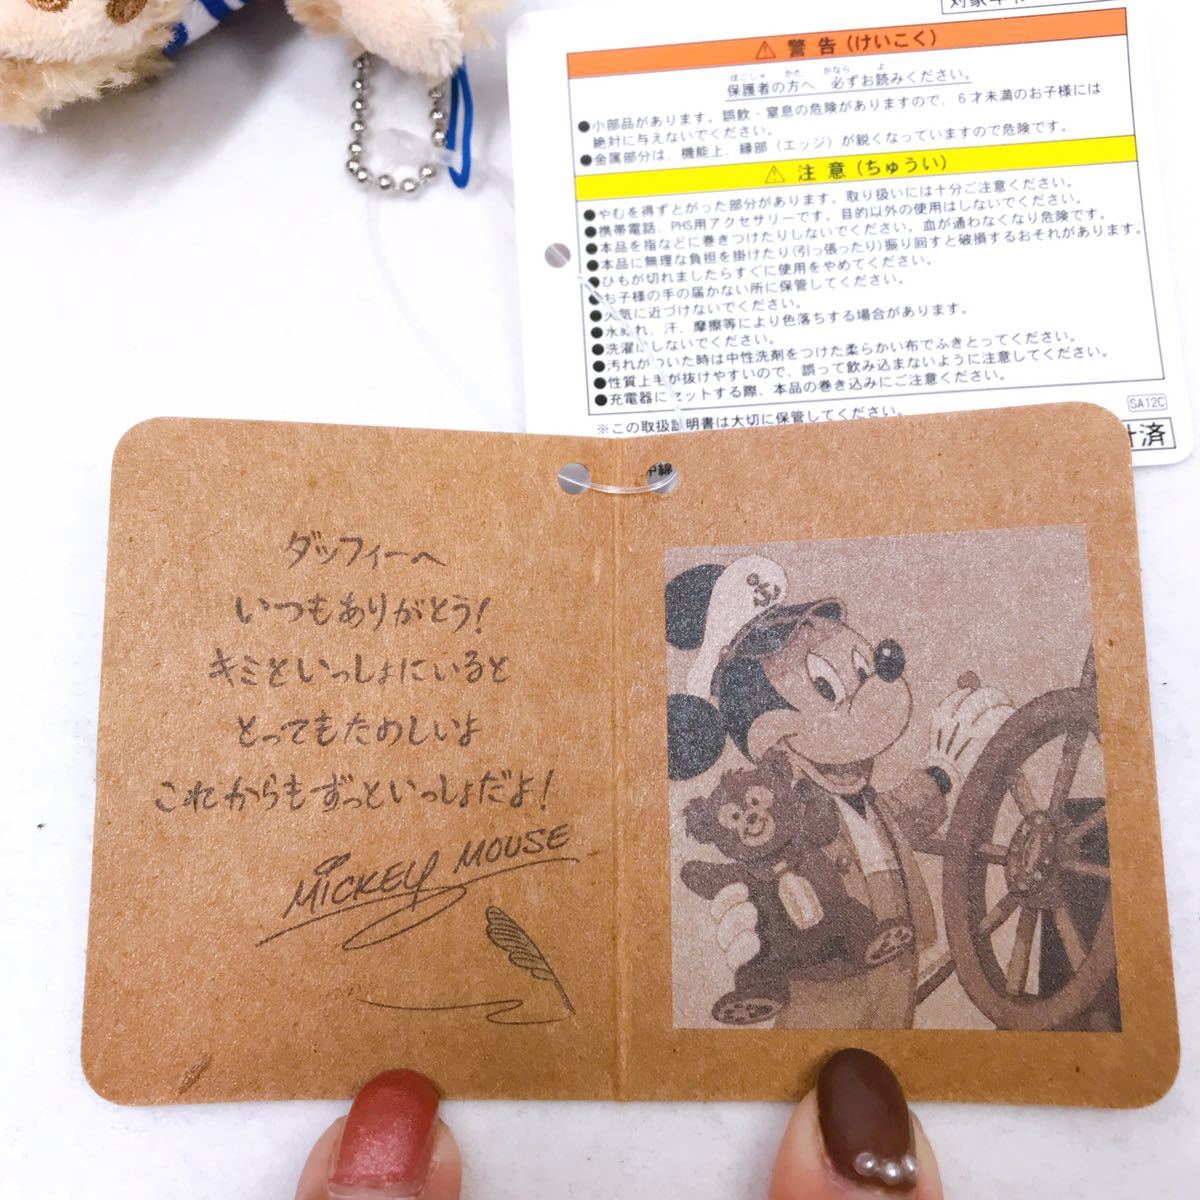 ⚠ 警告(けいこく)
ほごしゃ かた かなら よ
保護者の方へ 必ずお読みください。
●小部品があります。誤飲・窒息の危険がありますので、6才未満のお子様には
絶対に与えないでください。
●金属部分は、機能上、縁部(エッジ)が鋭くなっていますので危険です。
⚠ 注意(ちゅうい)
●やむを得ずとがった部分があります。取り扱いには十分ご注意ください。
●携帯電話、PHS用アクセサリーです。目的以外の使用はしないでください。
●本品を指などに巻きつけたりしないでください。血が通わなくなり危険です。
●本品に無理な負担を掛けたり(引っ張ったり)振り回すと破損するおそれがあります。
●ひもが切れましたらすぐに使用をやめてください。
●お子様の手の届かない所に保管してください。
●火気に近づけないでください。
●水ぬれ、汗、摩擦等により色落ちする場合があります。
●洗濯はしないでください。
●汚れがついた時は中性洗剤をつけた柔らかい布でふきとってください。
●性質上毛が抜けやすいので、誤って飲み込まないように注意してください。
●充電器にセットする際、本品の巻き込みにご注意ください。
SA12C
※この取扱説明書は大切に保管してください。
済
ダッフィーへ
いつもありがとう!
キミといっしょにいると
とってもたのしいよ
これからもずっといっしょだよ!
MICKEY MOUSE